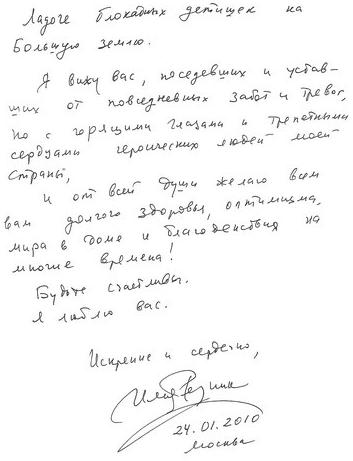 Ладоге блокадных детишек на
Большую землю.
Я вижу вас, поседевших и устав-
ших от повседневных забот и тревог,
но с горящими глазами и трепетными
сердцами героических людей моей
страны,
и от всей души желаю всем
вам долгого здоровья, оптимизма,
мира в доме и благоденствия на
многие времена!
Будьте счастливы.
Я люблю вас.
Искренне и сердечно,
Илья Резник
24.01.2010
Москва